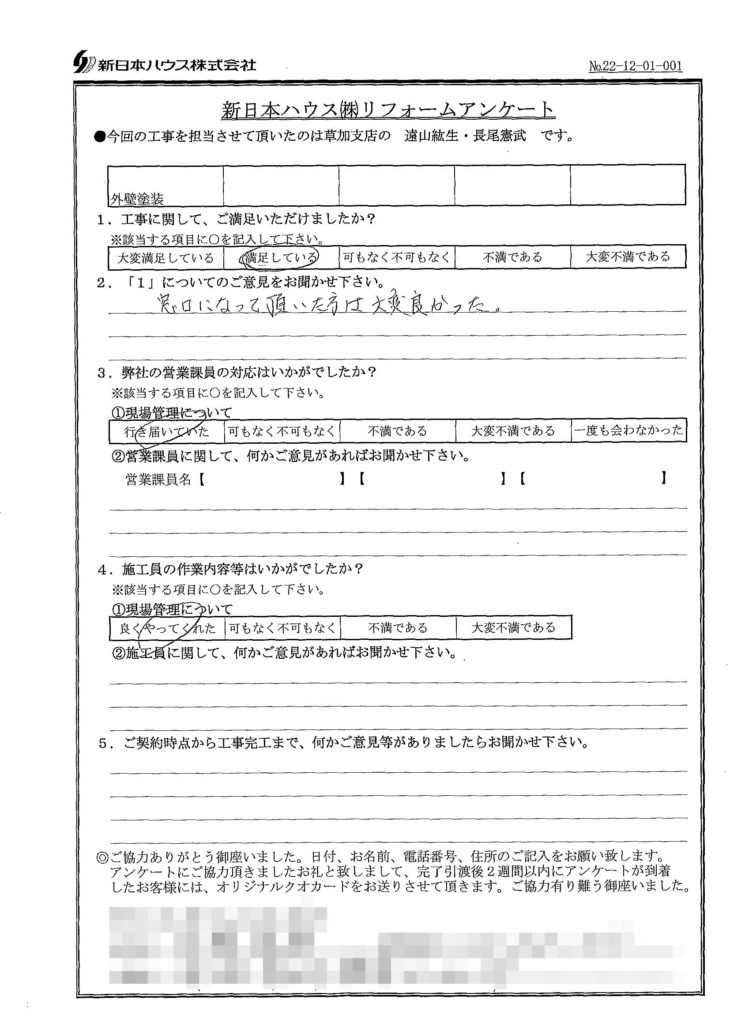 新日本ハウス株式会社
No.22-12-01-001
新日本ハウス㈱リフォームアンケート
●今回の工事を担当させて頂いたのは草加支店の 遠山紘生・長尾憲武 です。
外壁塗装
1．工事に関して、ご満足いただけましたか？
※該当する項目に○を記入して下さい。
大変満足している 満足している 可もなく不可もなく 不満である 大変不満である
2．「1」についてのご意見をお聞かせ下さい。
窓口になって頂いた方は大変良かった。
3．弊社の営業課員の対応はいかがでしたか？
※該当する項目に○を記入して下さい。
①現場管理について
行き届いていた 可もなく不可もなく 不満である 大変不満である 一度も会わなかった
②営業課員に関して、何かご意見があればお聞かせ下さい。
営業課員名【 】【 】【 】
4．施工員の作業内容等はいかがでしたか？
※該当する項目に○を記入して下さい。
①現場管理について
良くやってくれた 可もなく不可もなく 不満である 大変不満である
②施工員に関して、何かご意見があればお聞かせ下さい。
5．ご契約時点から工事完工まで、何かご意見等がありましたらお聞かせ下さい。
◎ご協力ありがとう御座いました。日付、お名前、電話番号、住所のご記入をお願い致します。
アンケートにご協力頂きましたお礼と致しまして、完了引渡後2週間以内にアンケートが到着
したお客様には、オリジナルクオカードをお送りさせて頂きます。ご協力有り難う御座いました。